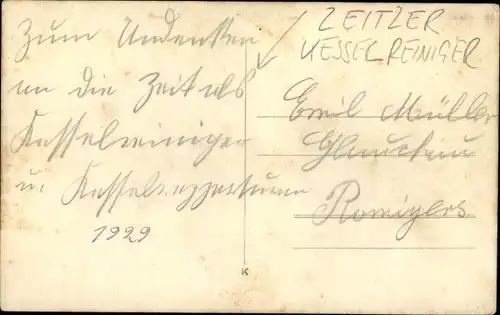 Zum Andenken
an die Zeit als
Kesselreiniger
u. Kesselreparturen
1929
ZEITZER
KESSELREINIGER
Emil Müller
Glauchau
K